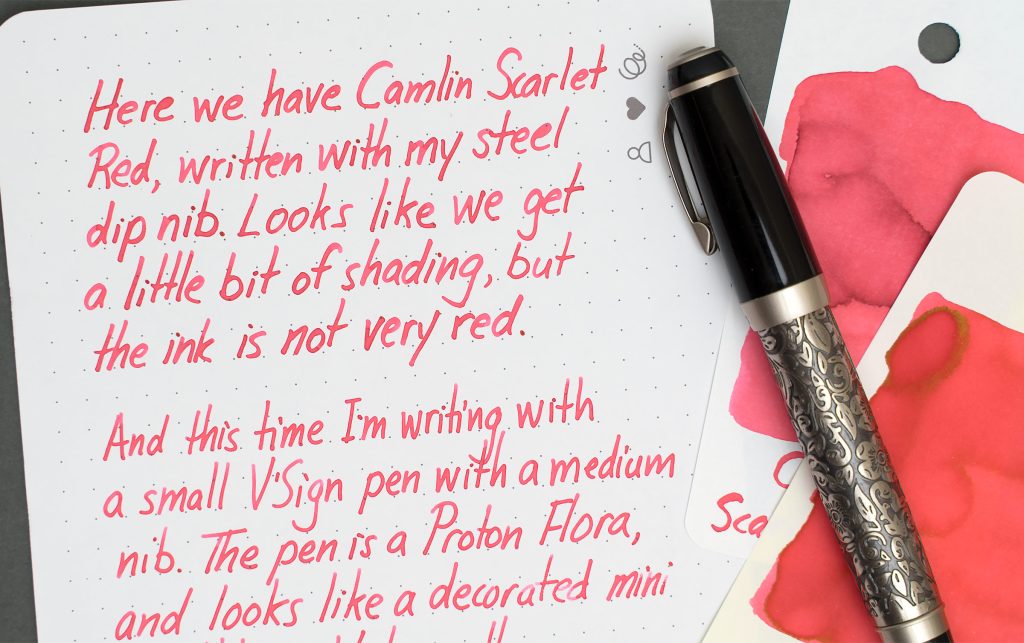 Here we have Camlin Scarlet
Red, written with my steel
dip nib. Looks like we get
a little bit of shading, but
the ink is not very red.
And this time I'm writing with
a small V'Sign pen with a medium
nib. The pen is a Proton Flora,
and looks like a decorated mini
Sca